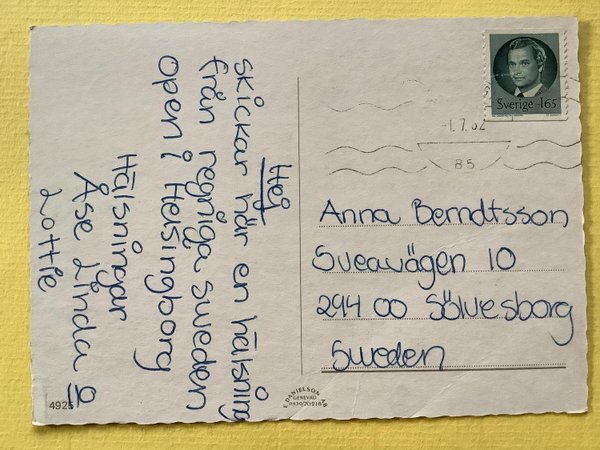 Hej
skickar här en hälsning
från regniga sweden
open i Helsingborg
Hälsningar
Åse Linda o
Lottie
Sverige 165
-1.7.82
85
Anna Berndtsson
Sveavägen 10
294 00 Sölvesborg
Sweden
4925
E. DANIELSON AB
GENEVAD
0430/70218